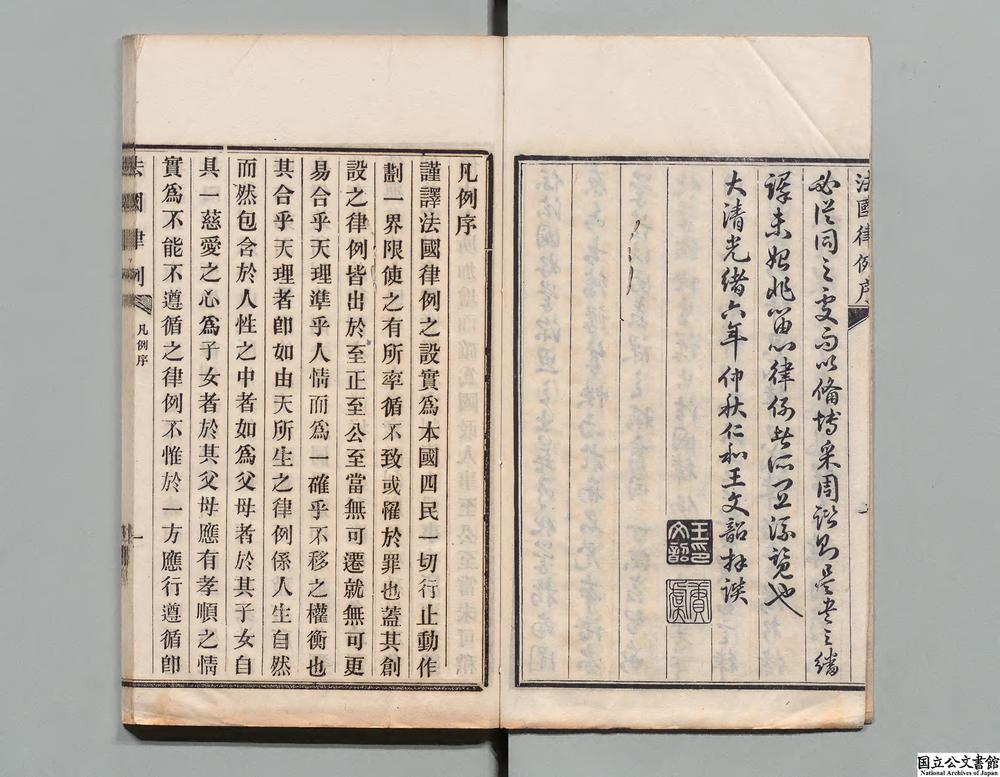 法國律例序
必從同之處而以備博采周諮則是書之繙
譯未始非留心律例者所宜流覽也
大清光緒六年仲秋仁和王文韶拜譔
王文韶印
夔石
凡例序
謹譯法國律例之設實爲本國四民一切行止動作
劃一界限使之有所率循不致或罹於罪也蓋其創
設之律例皆出於至正至公至當無可遷就無可更
易合乎天理準乎人情而爲一確乎不移之權衡也
其合乎天理者卽如由天所生之律例係人生自然
而然包含於人性之中者如爲父母者於其子女自
具一慈愛之心爲子女者於其父母應有孝順之情
實爲不能不遵循之律例不惟於一方應行遵循卽
法國律例
凡例序
一
国立公文書館
National Archives of Japan